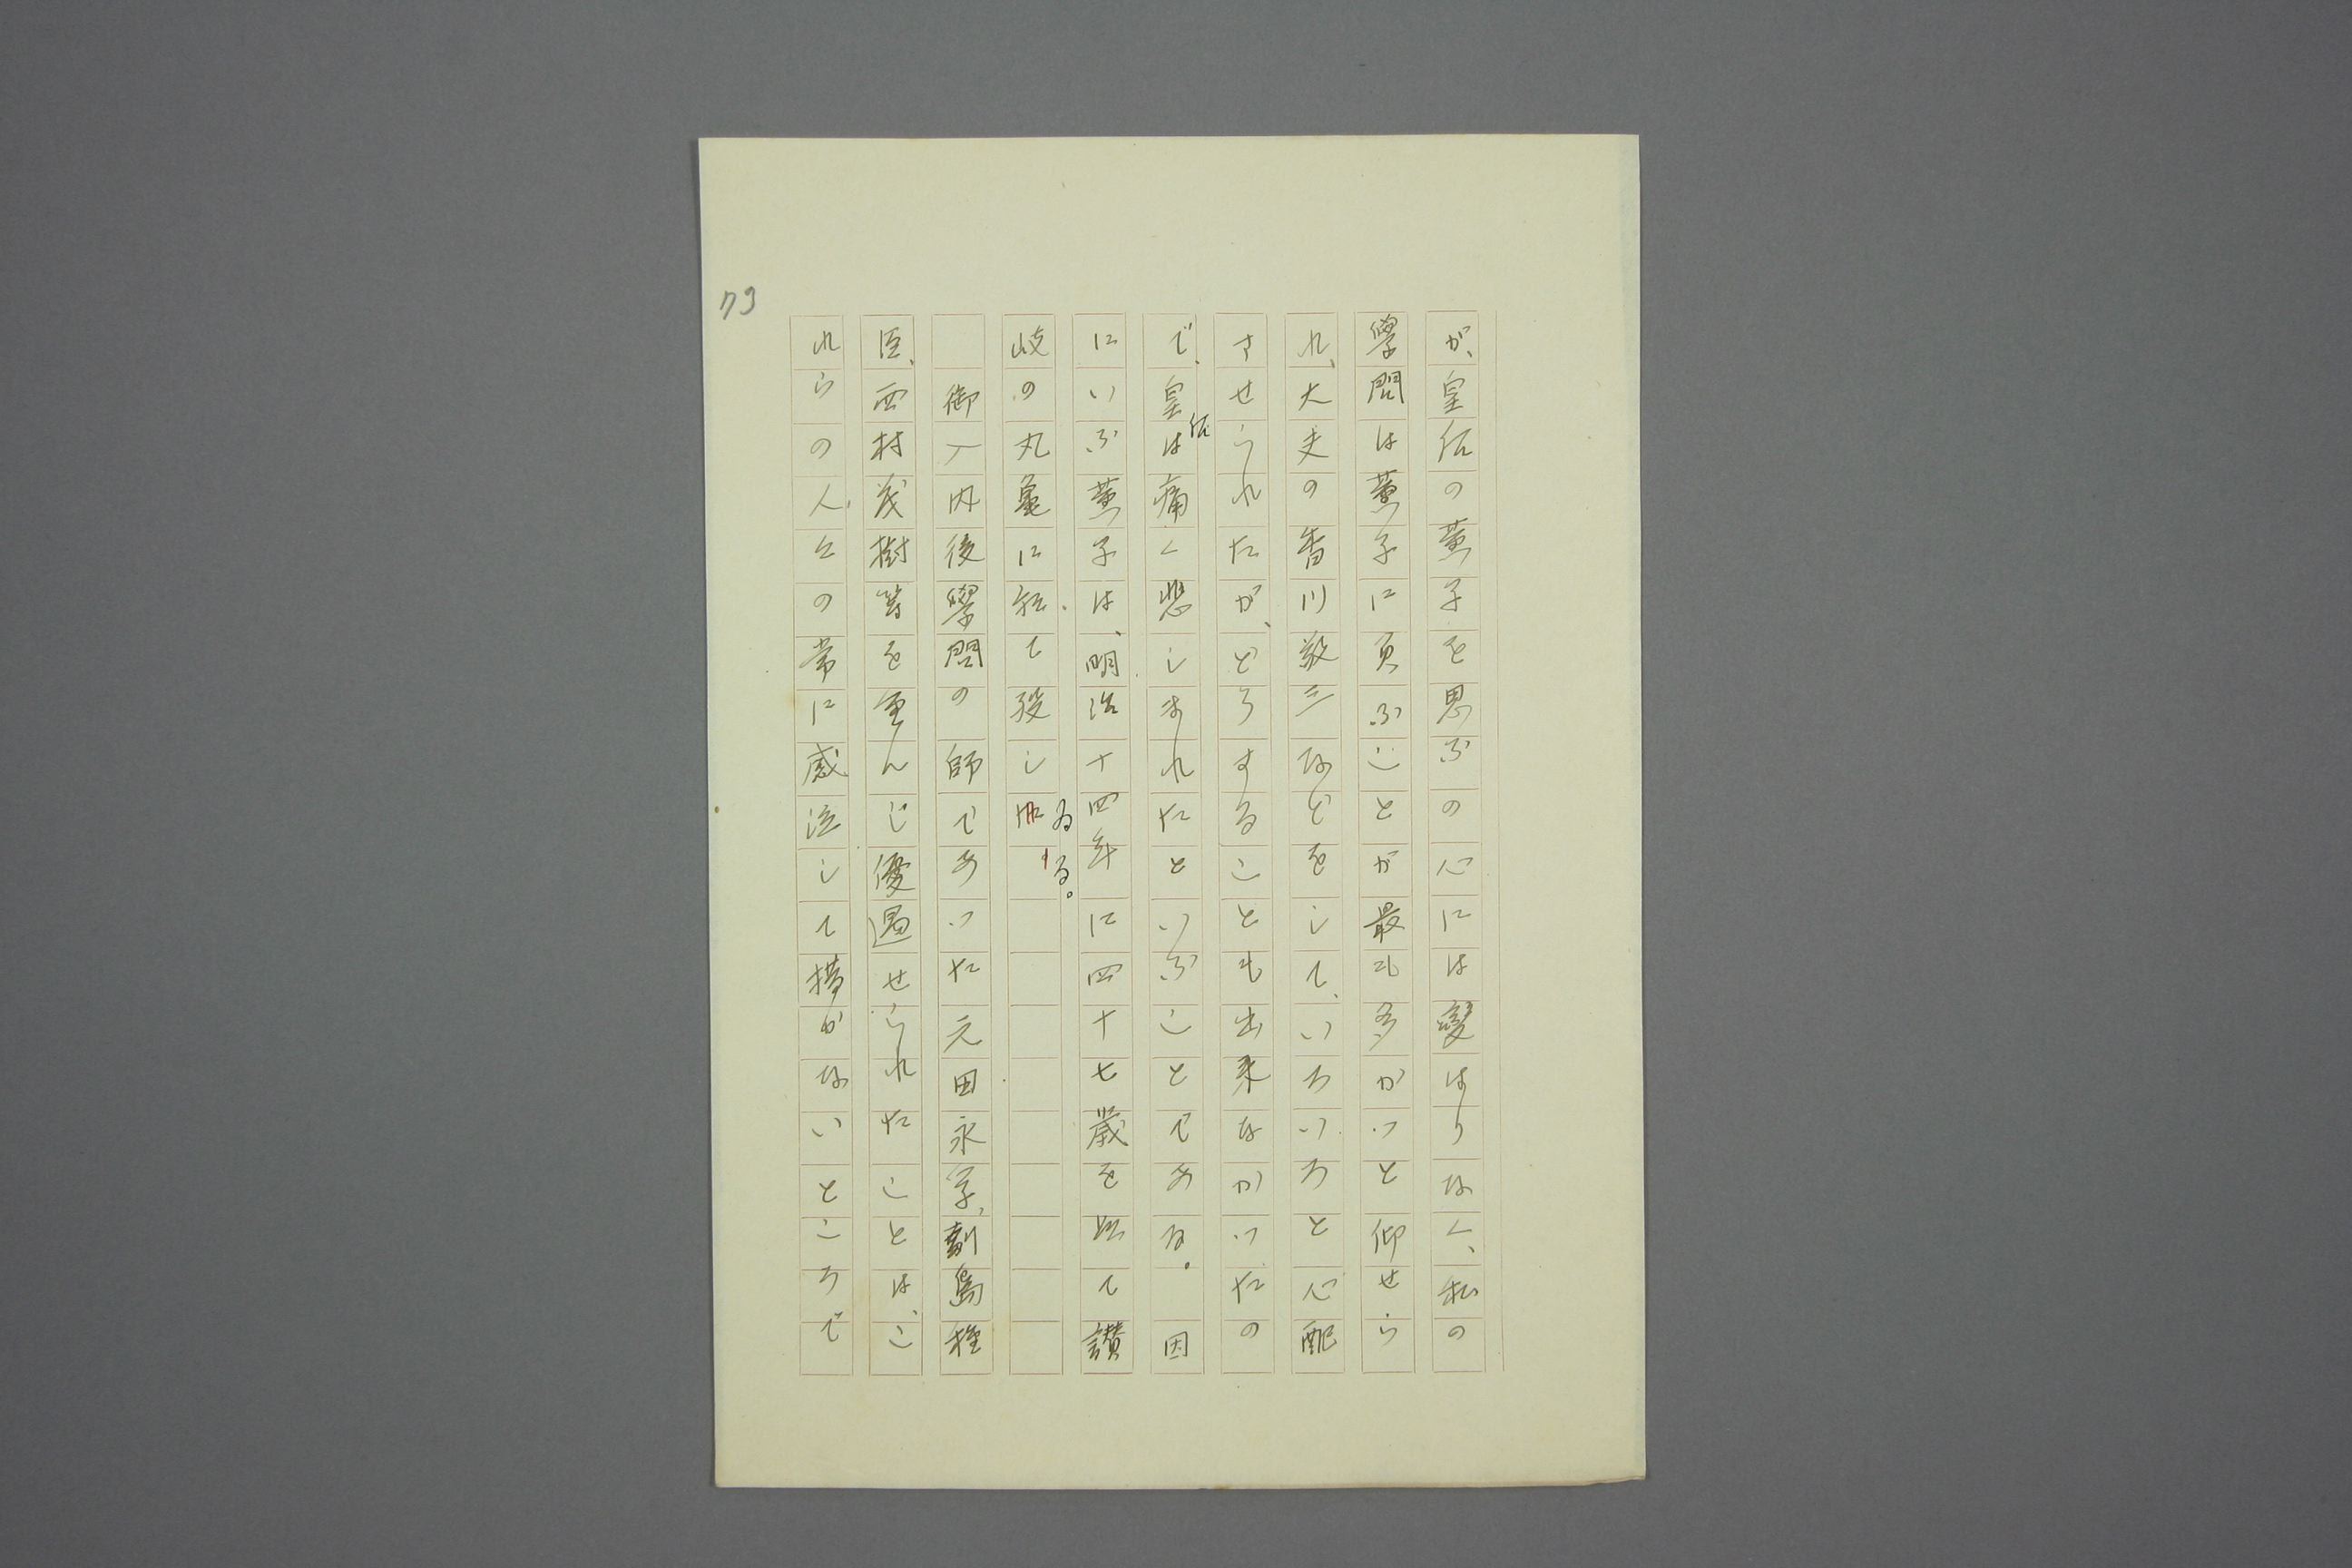 が、皇后の薫子を思ふの心には變はりなく、私の
學問は薫子に負ふことが最も多かつと仰せら
れ、大夫の香川敬三などをして、いろいろと心配
させられたが、どうすることも出来なかつたの
で、皇后は痛く悲しまれたといふことである。因
にいふ薫子は、明治十四年に四十七歳を以て讃
岐の丸亀に於て歿しゐる。
御入内後學問の師であつた元田永孚、副島種
臣、西村茂樹等を重んじ優遇せられたことは、こ
れらの人々の常に感泣して措かないところで
73